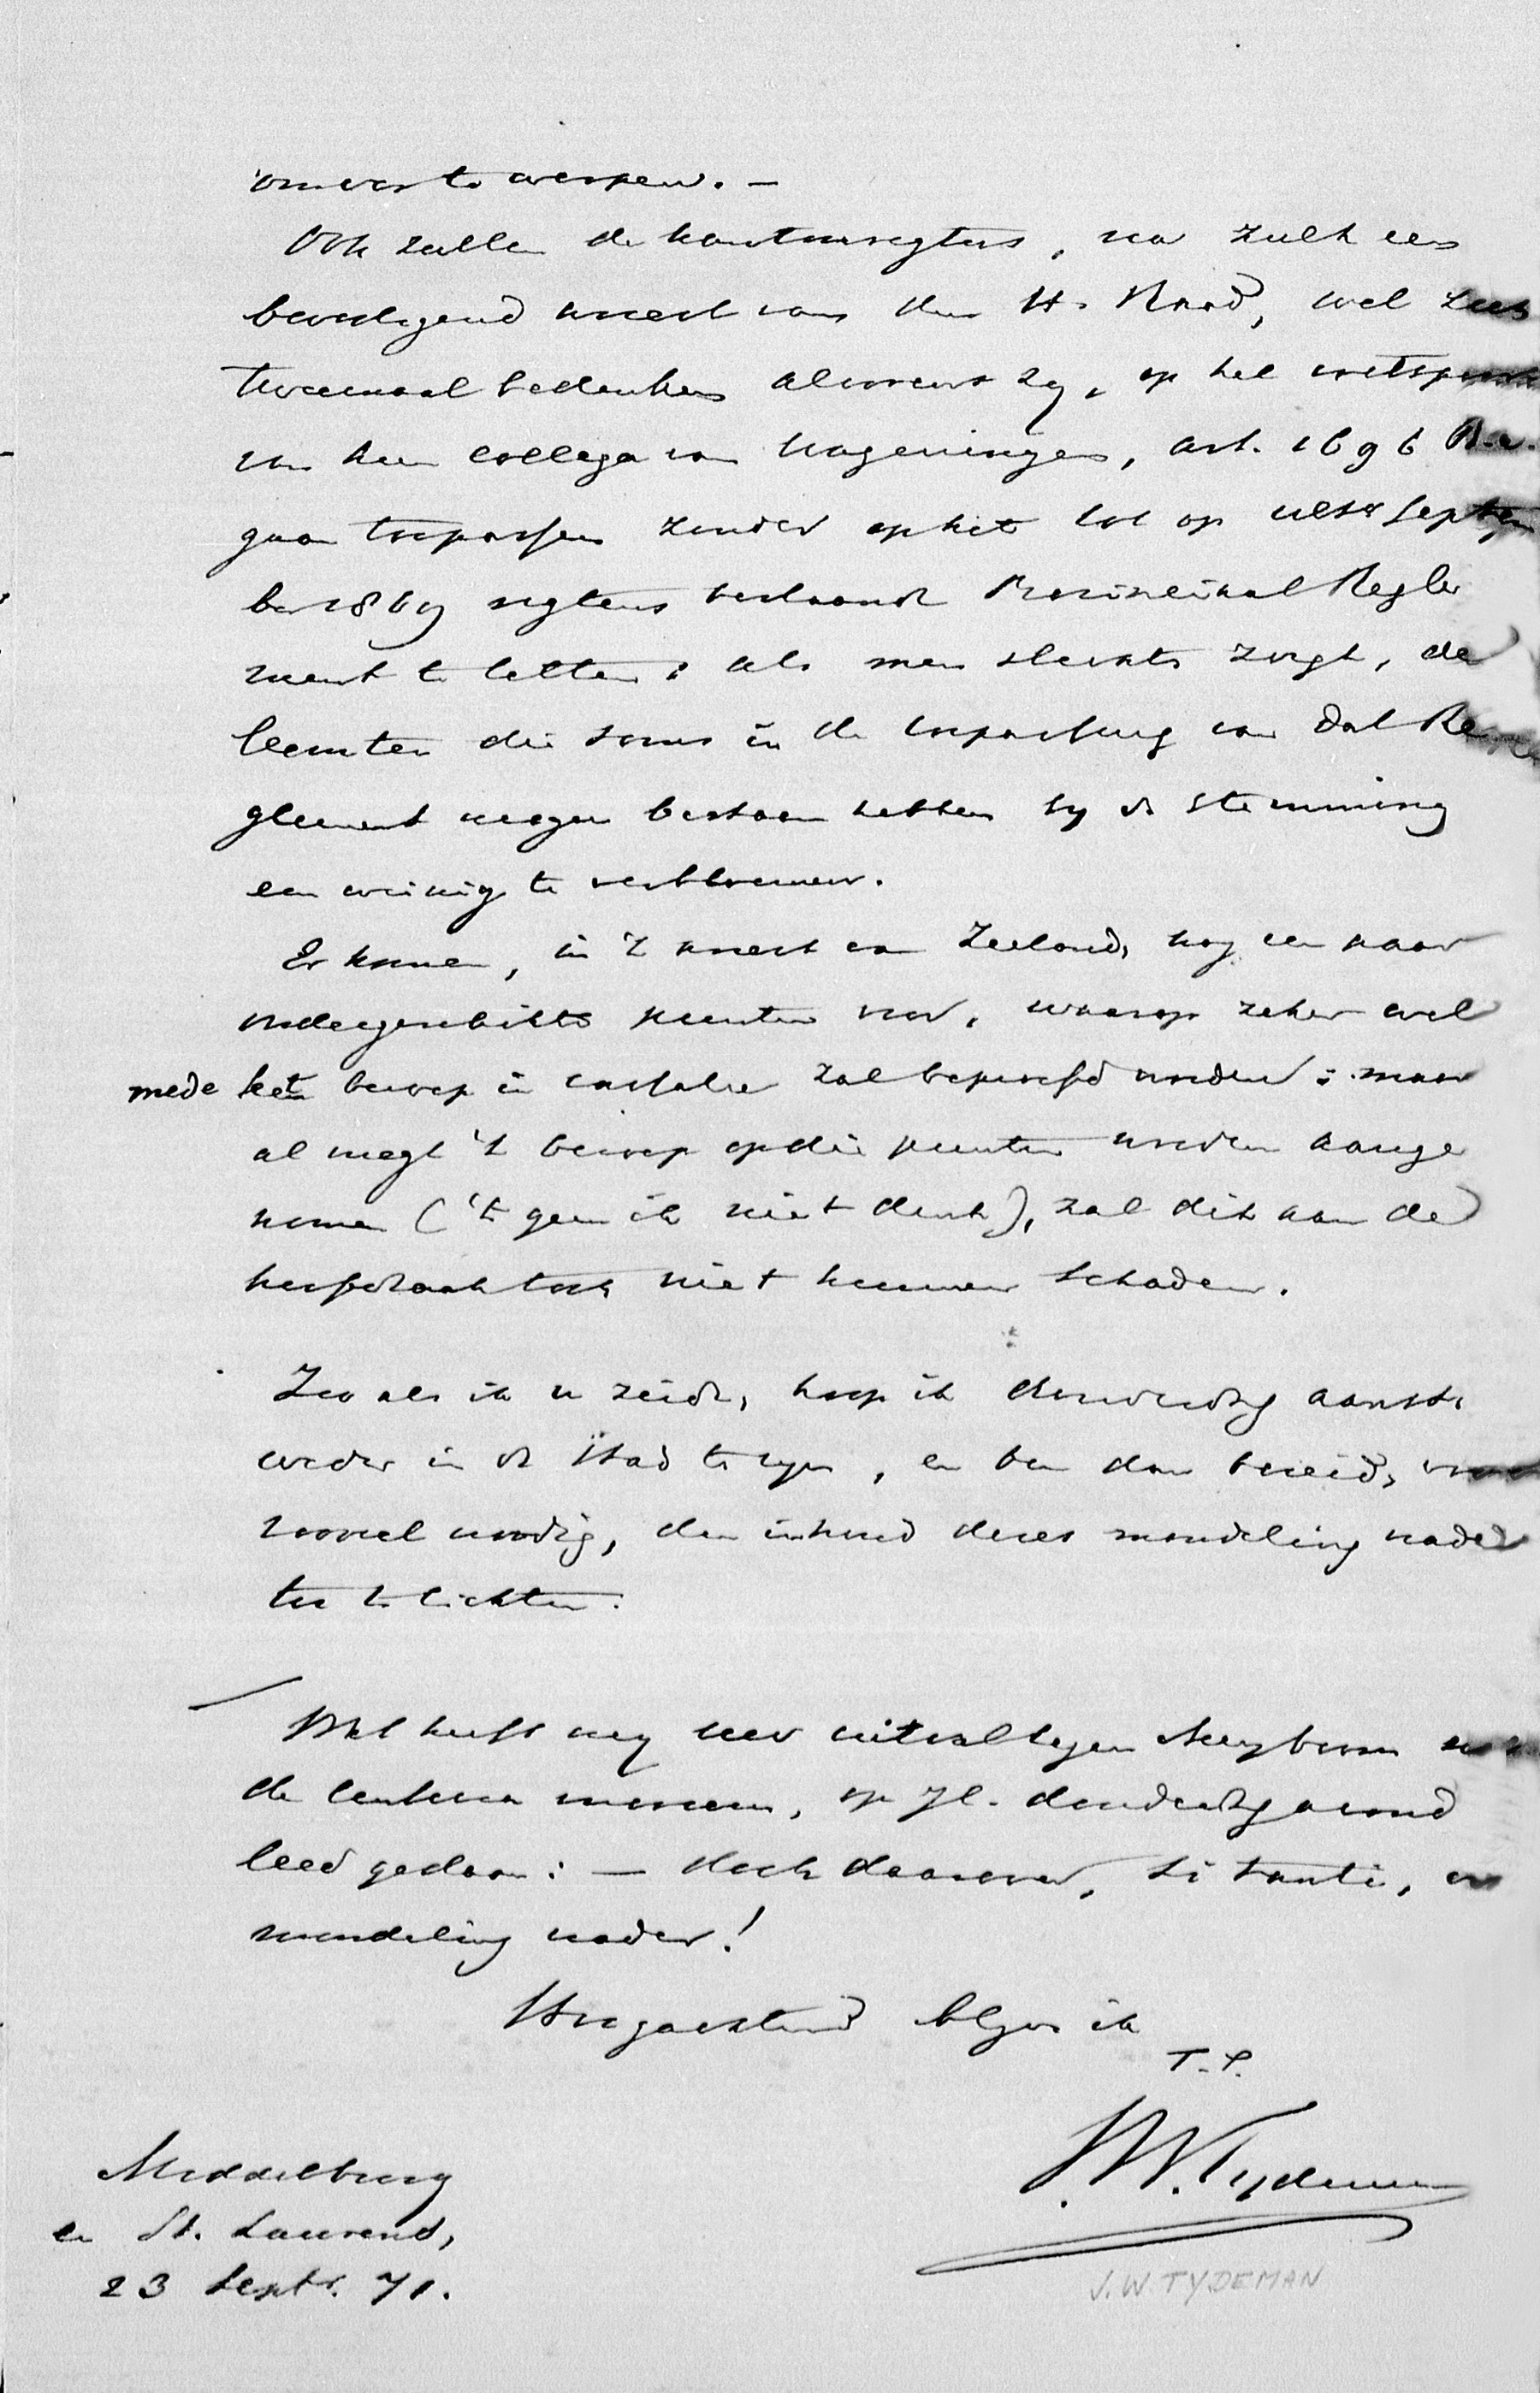 omver te werpen. —
Ook zullen de kantonregters, na zulk een
bevestigend arrest van den H. Raad, wel zich
tweemaal bedenken alvorens zy, op het voetspoor
van hun collega van Wageningen, art. 1696
gaan toepassen zonder op het tot op ult° Septem
ber 1869 regtens bestaande Provinciaal Regle
ment te letten: als men slechts zorgt, de
leemten die soms in de toepassing van dat Re
glement mogen bestaan hebben by de stemming
een weinig te verbloemen.
Er komen, in 't arrest van Zeeland, nog een paar
ondergeschikte punten voor, waarop zeker wel
mede het beroep in cassatie zal beproefd worden: maar
al mogt 't beroep op die punten worden aange
nomen ('t geen ik niet denk), zal dit aan de
hoofdzaak toch niet kunnen schaden.
Zoo als ik u zeide, hoop ik donderdag aanst.
weder in de stad te zyn, en ben dan bereid, voor
zooveel noodig, den inhoud dezes mondeling nader
toe te lichten.
Wel heeft my uw uitvallen tegen
de op jl. donderdag avond
leed gedaan: — doch daarover, si tanti,
mondeling nader!
Hoogachtend blyve ik
T. T.
J. W. Tydeman
Middelburg
en St. Laurens,
23 Septr. 71.
J. W. TYDEMAN